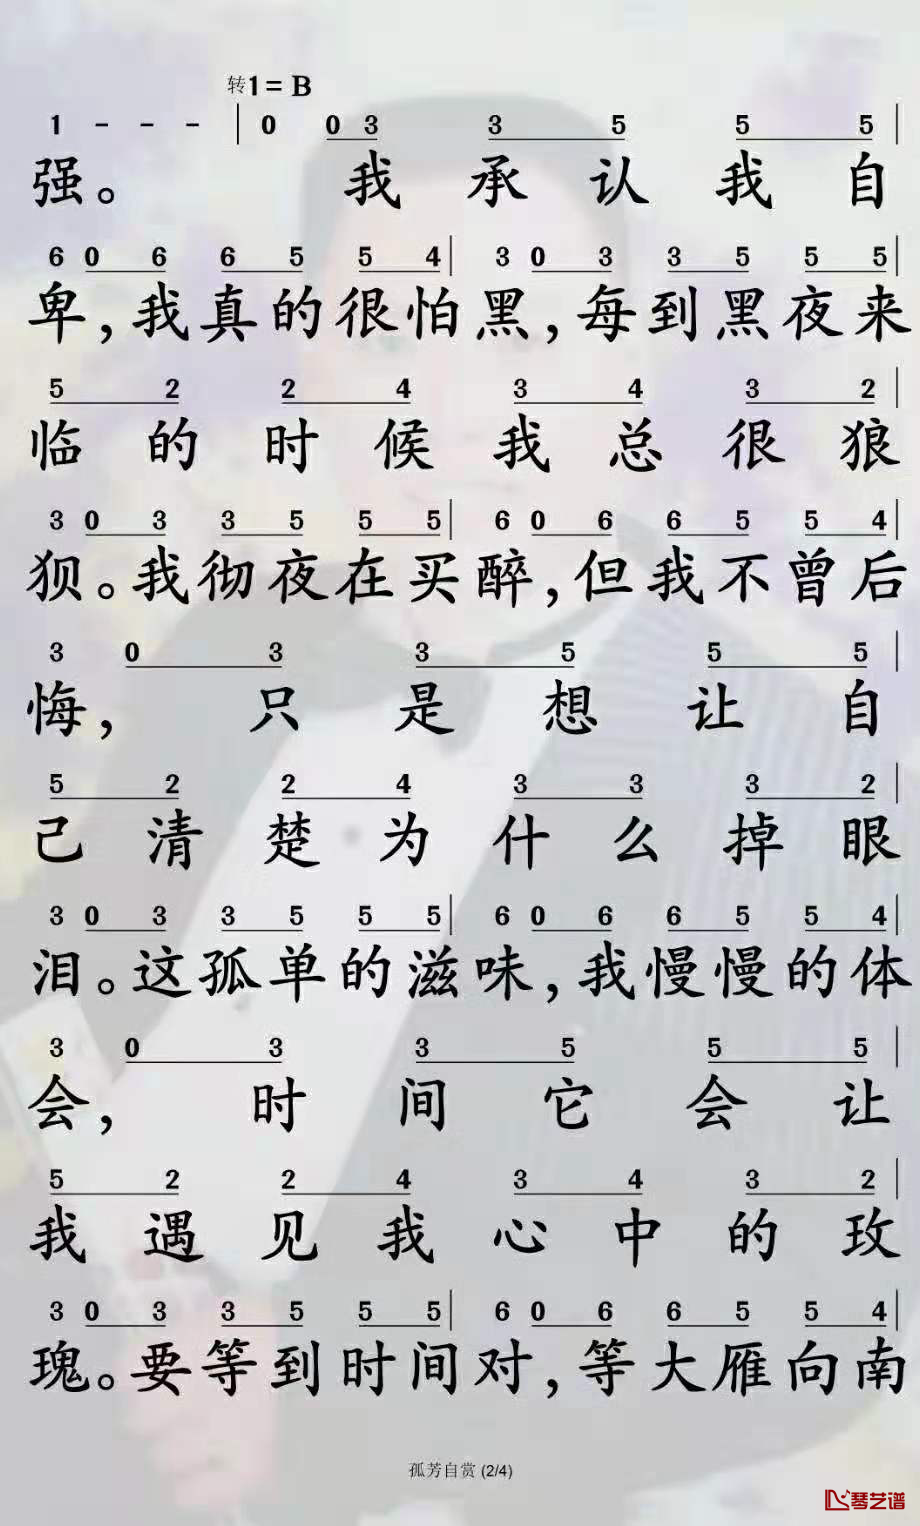 转1=B
1 - - - | 0 0 3 3 5 5 5 |
强。 我 承 认 我 自
6 0 6 6 5 5 4 | 3 0 3 3 5 5 5 |
卑，我真的很怕黑，每到黑夜来
5 2 2 4 3 4 3 2 |
临的时候我总很狼
3 0 3 3 5 5 5 | 6 0 6 6 5 5 4 |
狈。我彻夜在买醉，但我不曾后
3 0 3 3 5 5 5 |
悔，只是想让自
5 2 2 4 3 3 3 2 |
己清楚为什么掉眼
3 0 3 3 5 5 5 | 6 0 6 6 5 5 4 |
泪。这孤单的滋味，我慢慢的体
3 0 3 3 5 5 5 |
会，时间它会让
5 2 2 4 3 4 3 2 |
我遇见我心中的玫
3 0 3 3 5 5 5 | 6 0 6 6 5 5 4 |
瑰。要等到时间对，等大雁向南
孤芳自赏 (2/4)
琴艺谱